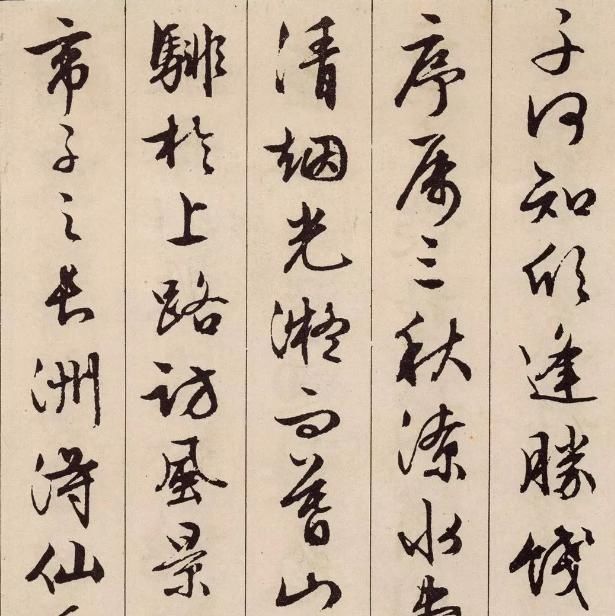 子何知逢勝餞
序属三秋潦水
清烟光凝而暮山
騑於上路訪風景
帝子之長洲得仙